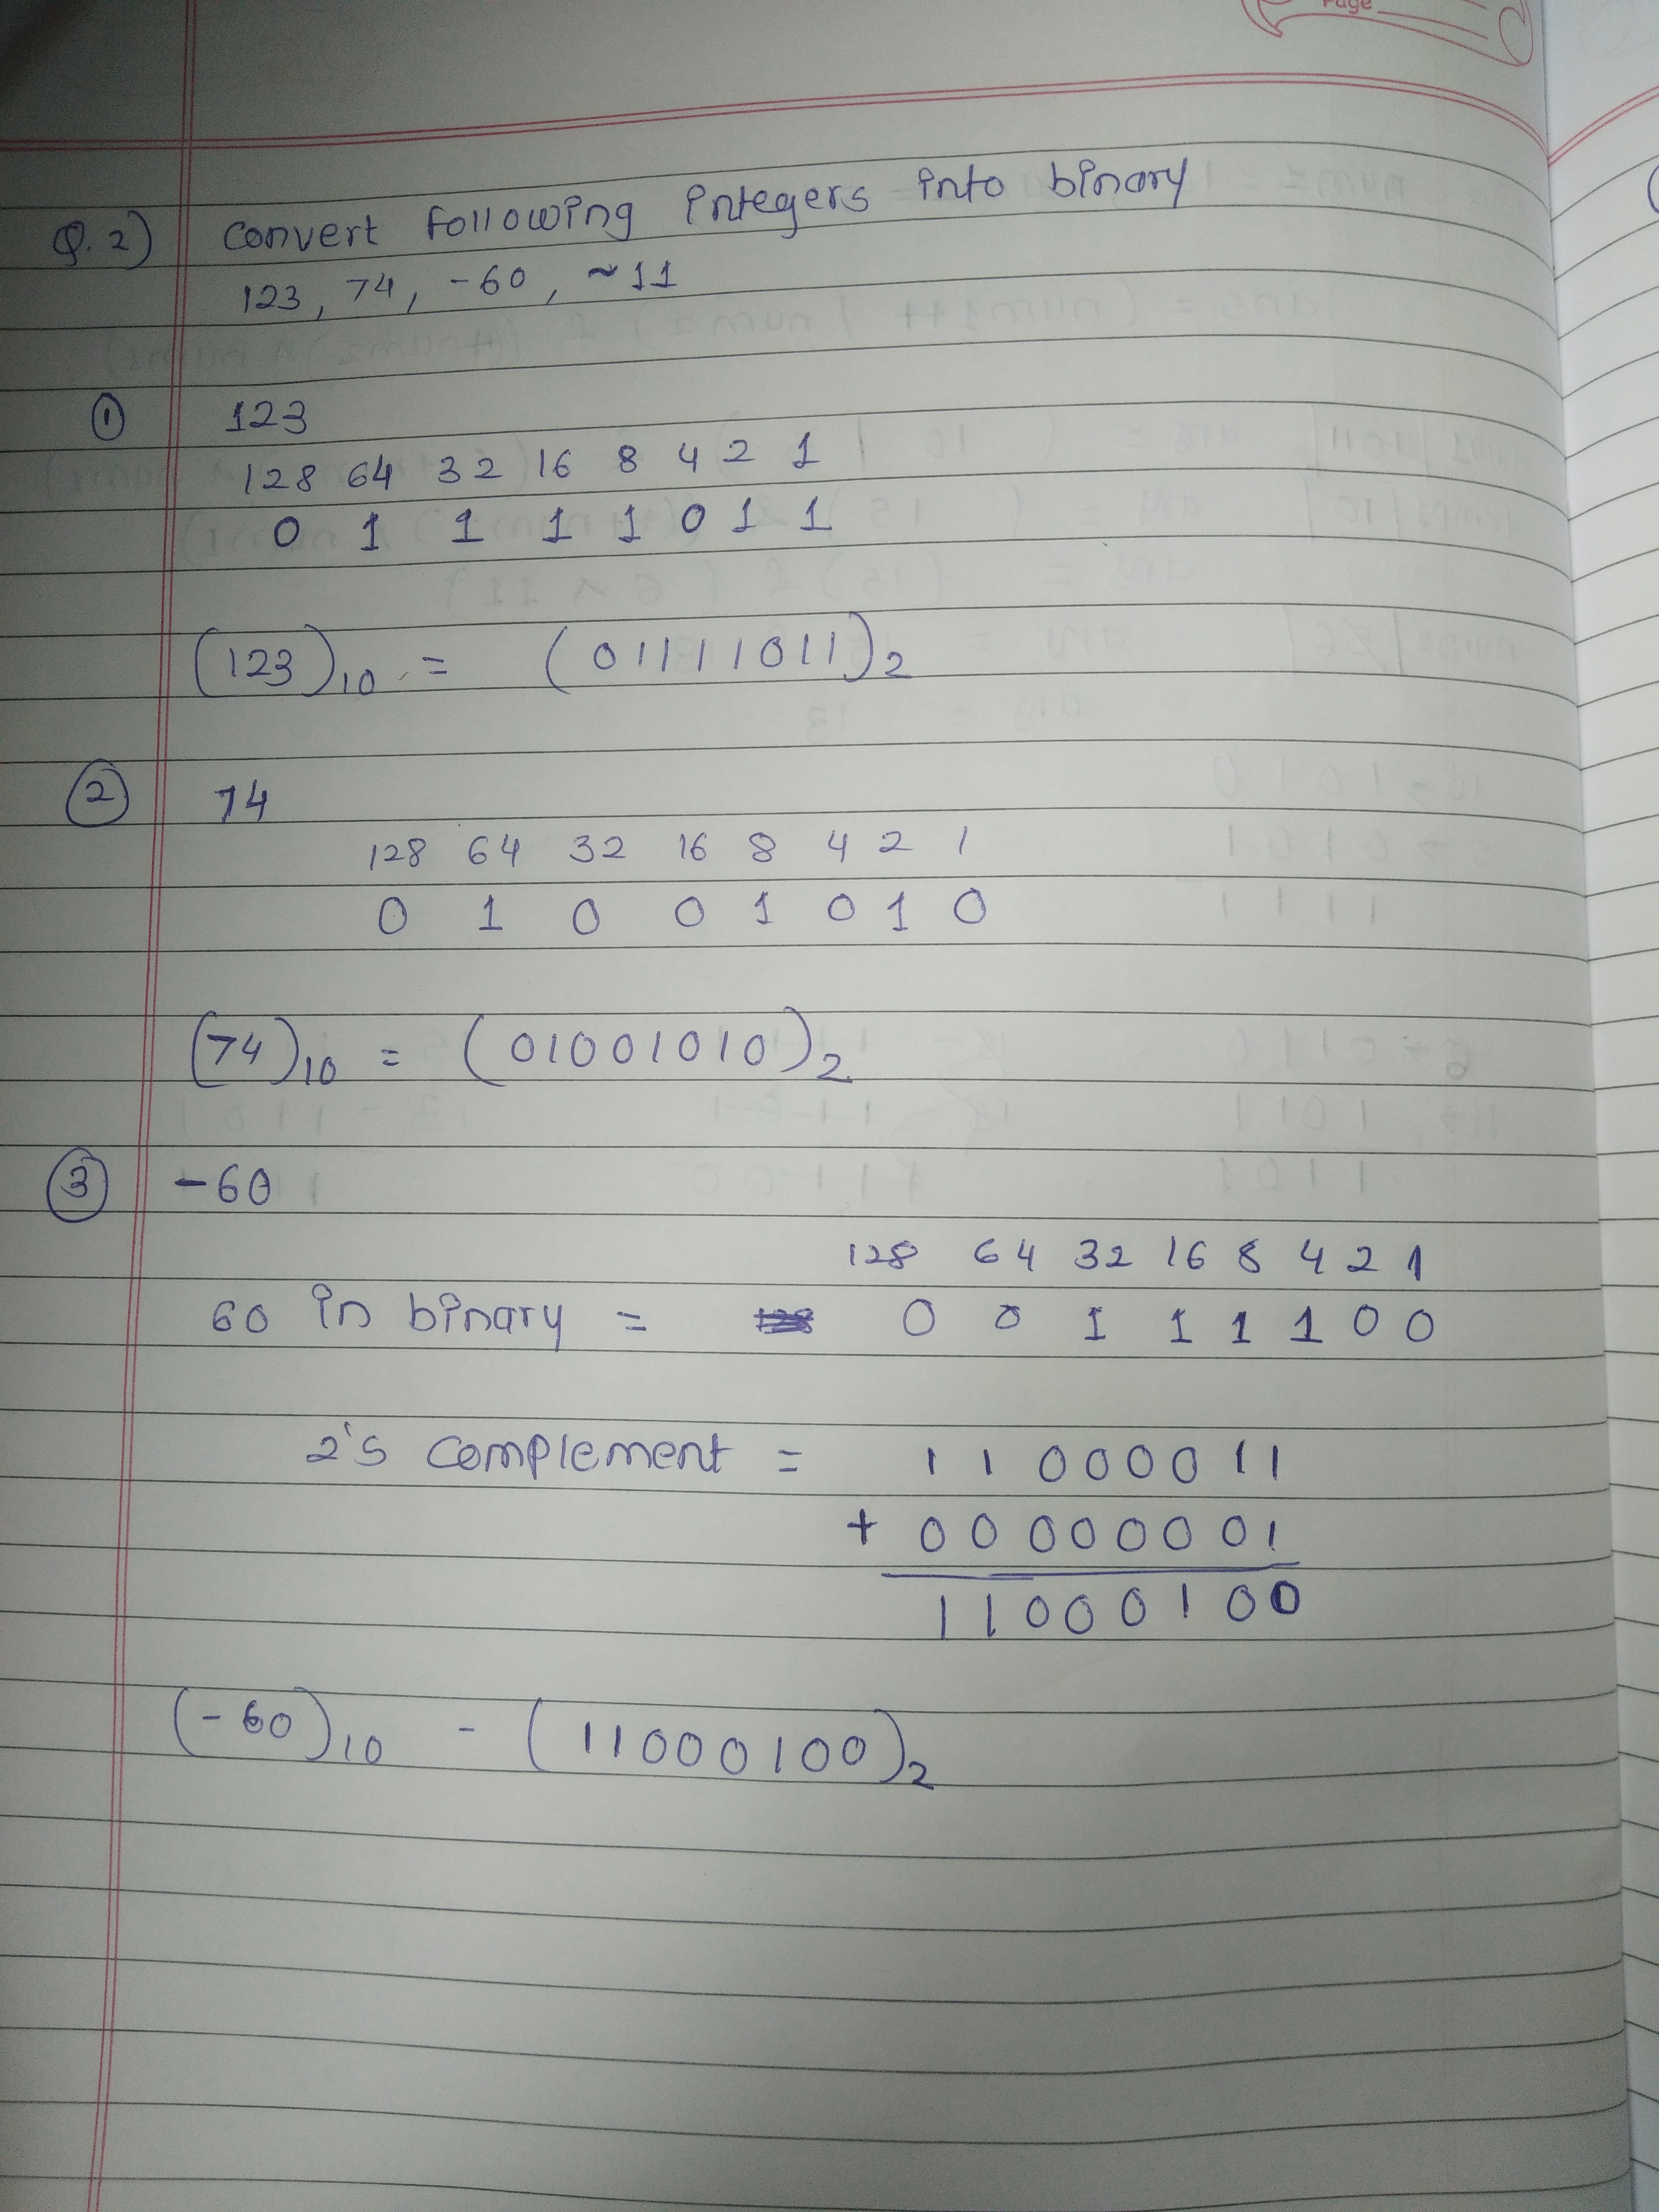 Page
Q.2) convert following integers into binary
123, 74, -60, ~11
① 123
128 64 32 16 8 4 2 1
0 1 1 1 1 0 1 1
(123)10 = (01111011)2
② 74
128 64 32 16 8 4 2 1
0 1 0 0 1 0 1 0
(74)10 = (01001010)2
③ -60
128 64 32 16 8 4 2 1
60 in binary = 0 0 1 1 1 1 0 0
2's complement = 1 1 0 0 0 0 1 1
+ 0 0 0 0 0 0 0 1
1 1 0 0 0 1 0 0
(-60)10 - (11000100)2